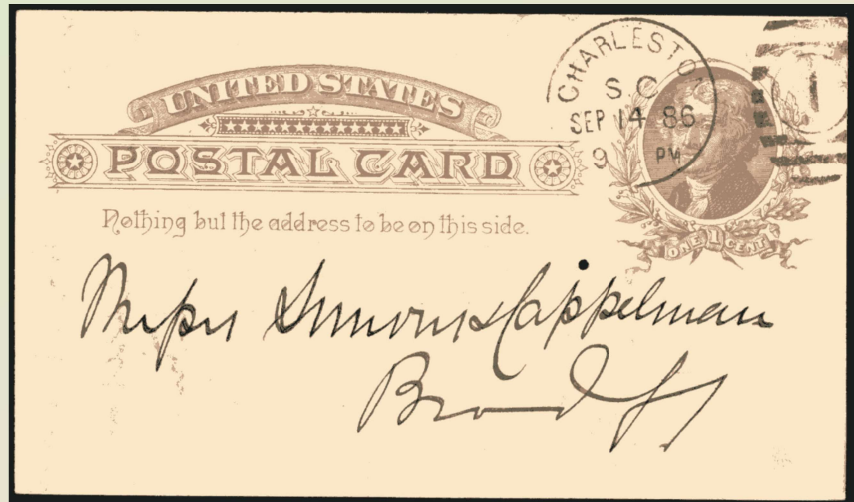 UNITED STATES
POSTAL CARD
Nothing but the address to be on this side.
CHARLESTON
S.C.
SEP 14 86
9 PM
1
ONE 1 CENT
Messrs Simons & Cappelman
Broad St